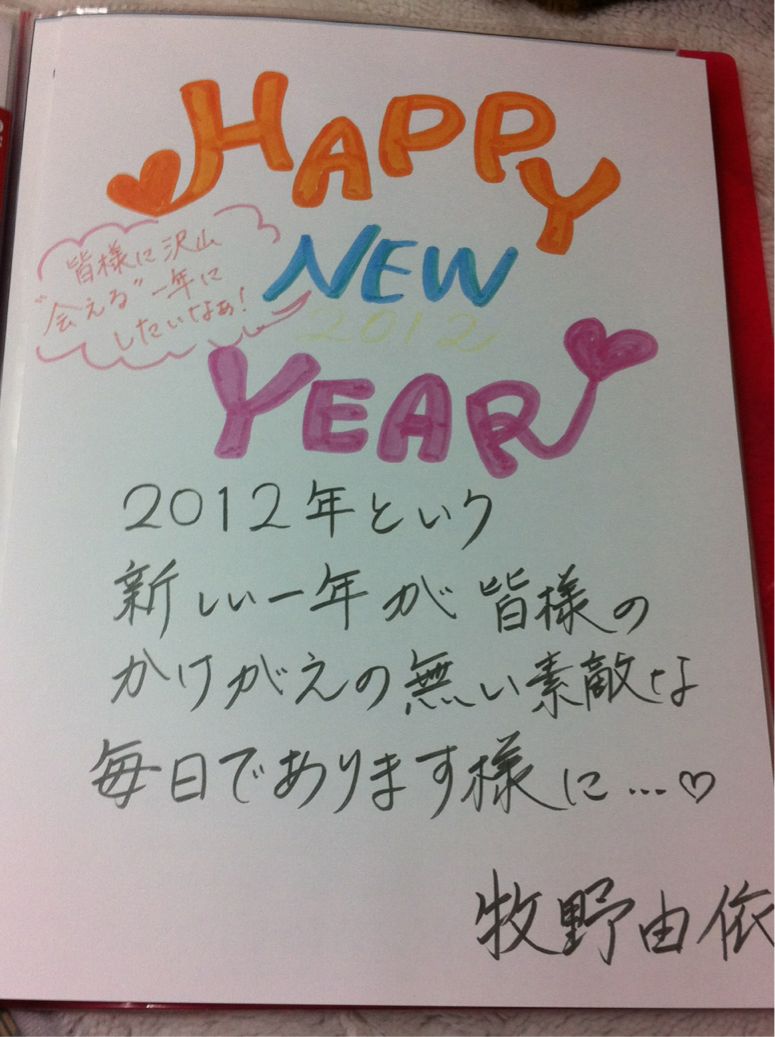 HAPPY
NEW
2012
YEAR
皆様に沢山
"会える"一年に
したいなぁ!
2012年という
新しい一年が皆様の
かけがえの無い素敵な
毎日であります様に…♡
牧野由依